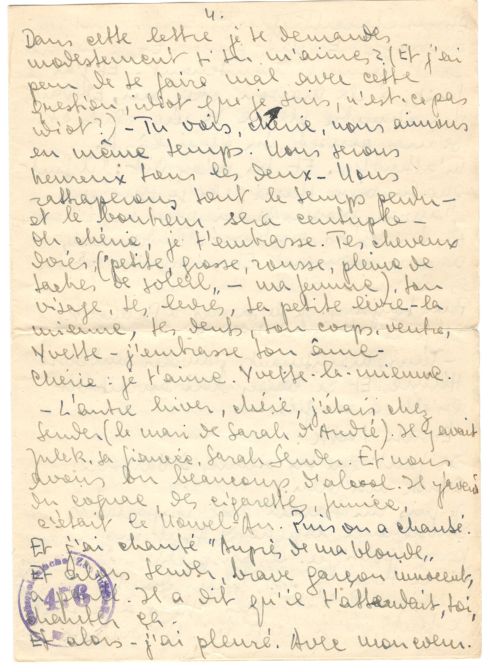 4.
Dans cette lettre je te demandes
modestement si tu m'aimes? (Et j'ai
peur de te faire mal avec cette
question, idiot que je suis, n'est-ce pas
idiot?) - Tu vois, chérie, nous aimons
en même temps. Nous serons
heureux tous les deux - Nous
rattraperons tout le temps perdu -
et le bonheur sera centuple -
Oh chérie, je t'embrasse. Tes cheveux
dorés, ("petite, grosse, rousse, pleine de
taches de soleil„ - ma femme), ton
visage, tes levres, ta petite livre-la
mienne, tes dents, ton corps, ventre,
Yvette - j'embrasse ton âme -
Chérie: je t'aime. Yvette-la-mienne.
- L'autre hiver, chérie, j'étais chez
Sender (le mari de Sarah d'André). Il y avait
Julek, sa fiancée, Sarah, Sender. Et nous
avons bu beaucoup d'alcool. Il y avait
du cognac, des cigarettes, fumée,
c'était le Nouvel-An. Puis on a chanté.
Et j'ai chanté "Auprès de ma blonde„
Et alors Sender, brave garçon innocent,
a Il a dit qu'il t'attendait, toi,
chanter ça.
Et alors - j'ai pleuré. Avec mon coeur.
46